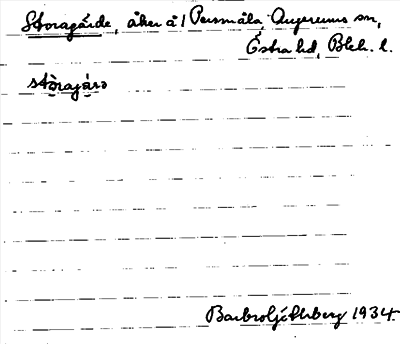 Storagärde, åker å 1 Persmåla Augerums sn,
Östra hd, Blek. l.
stòrajárə
Barbro Ljé Ahberg 1934.